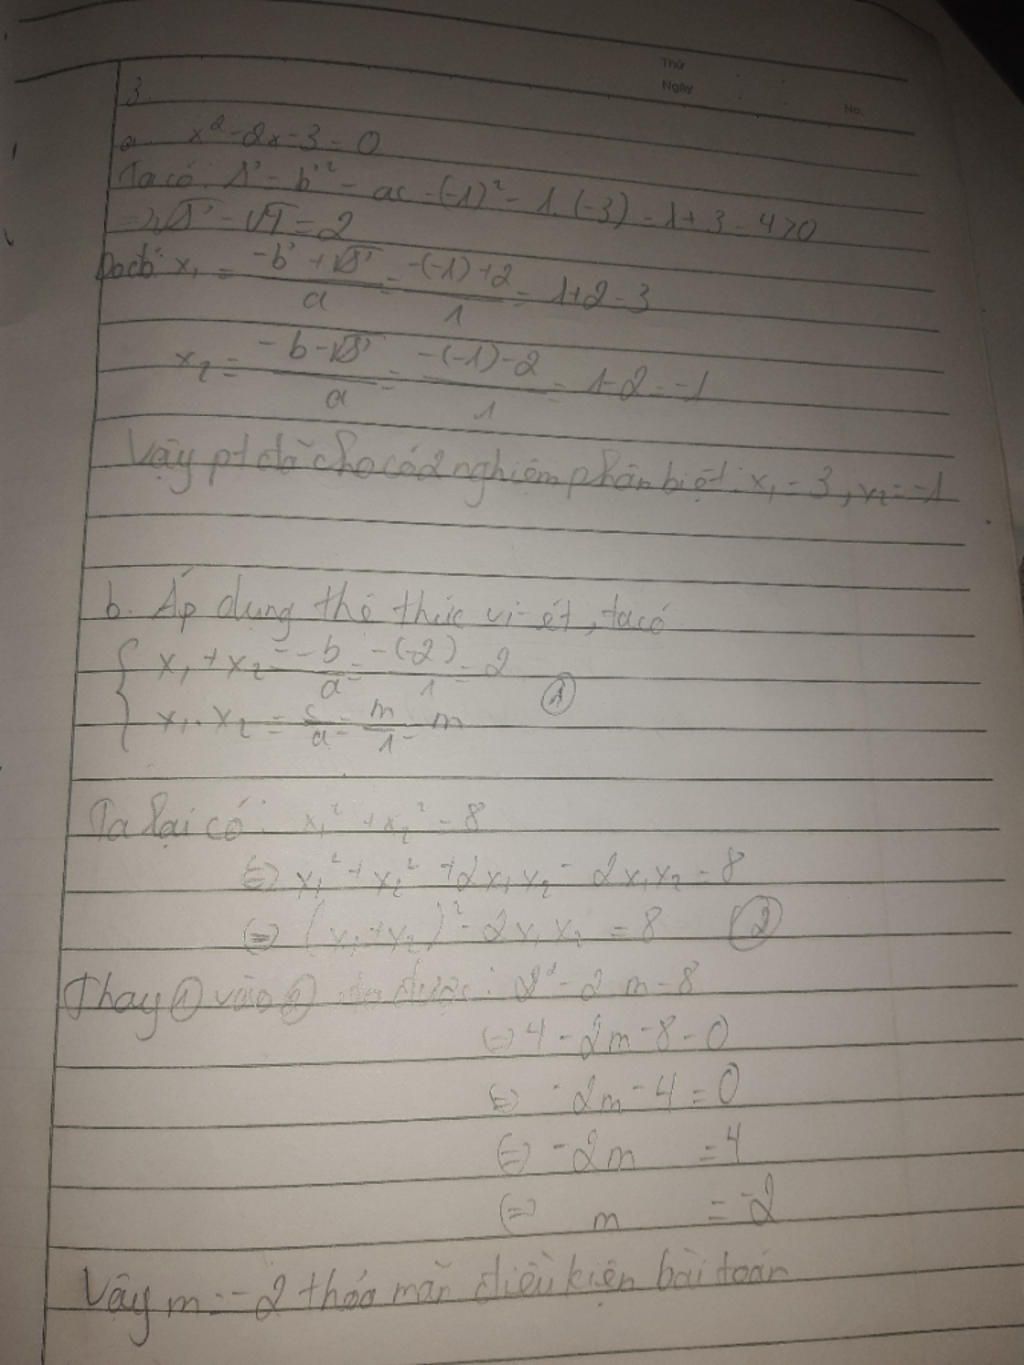 Thứ
Ngày
No.
3.
a. x² - 2x - 3 = 0
Ta có: Δ' = b'² - ac = (-1)² - 1.(-3) = 1 + 3 = 4 > 0
=> √Δ' = √4 = 2
Do đó: x₁ = (-b' + √Δ')/a = (-(-1) + 2)/1 = 1 + 2 = 3
x₂ = (-b - √Δ')/a = (-(-1) - 2)/1 = 1 - 2 = -1
Vậy pt đã cho có 2 nghiệm phân biệt: x₁ = 3, x₂ = -1
b. Áp dụng thê thức vi-ét, ta có
{ x₁ + x₂ = -b/a = -(-2)/1 = 2
x₁.x₂ = c/a = m/1 = m ①
Ta lại có: x₁² + x₂² = 8
⇔ x₁² + x₂² + 2x₁x₂ - 2x₁x₂ = 8
⇔ (x₁ + x₂)² - 2x₁x₂ = 8 ②
Thay ① vào ② ta được: 2² - 2m = 8
⇔ 4 - 2m - 8 = 0
⇔ -2m - 4 = 0
⇔ -2m = 4
⇔ m = -2
Vậy m = -2 thỏa mãn điều kiện bài toán